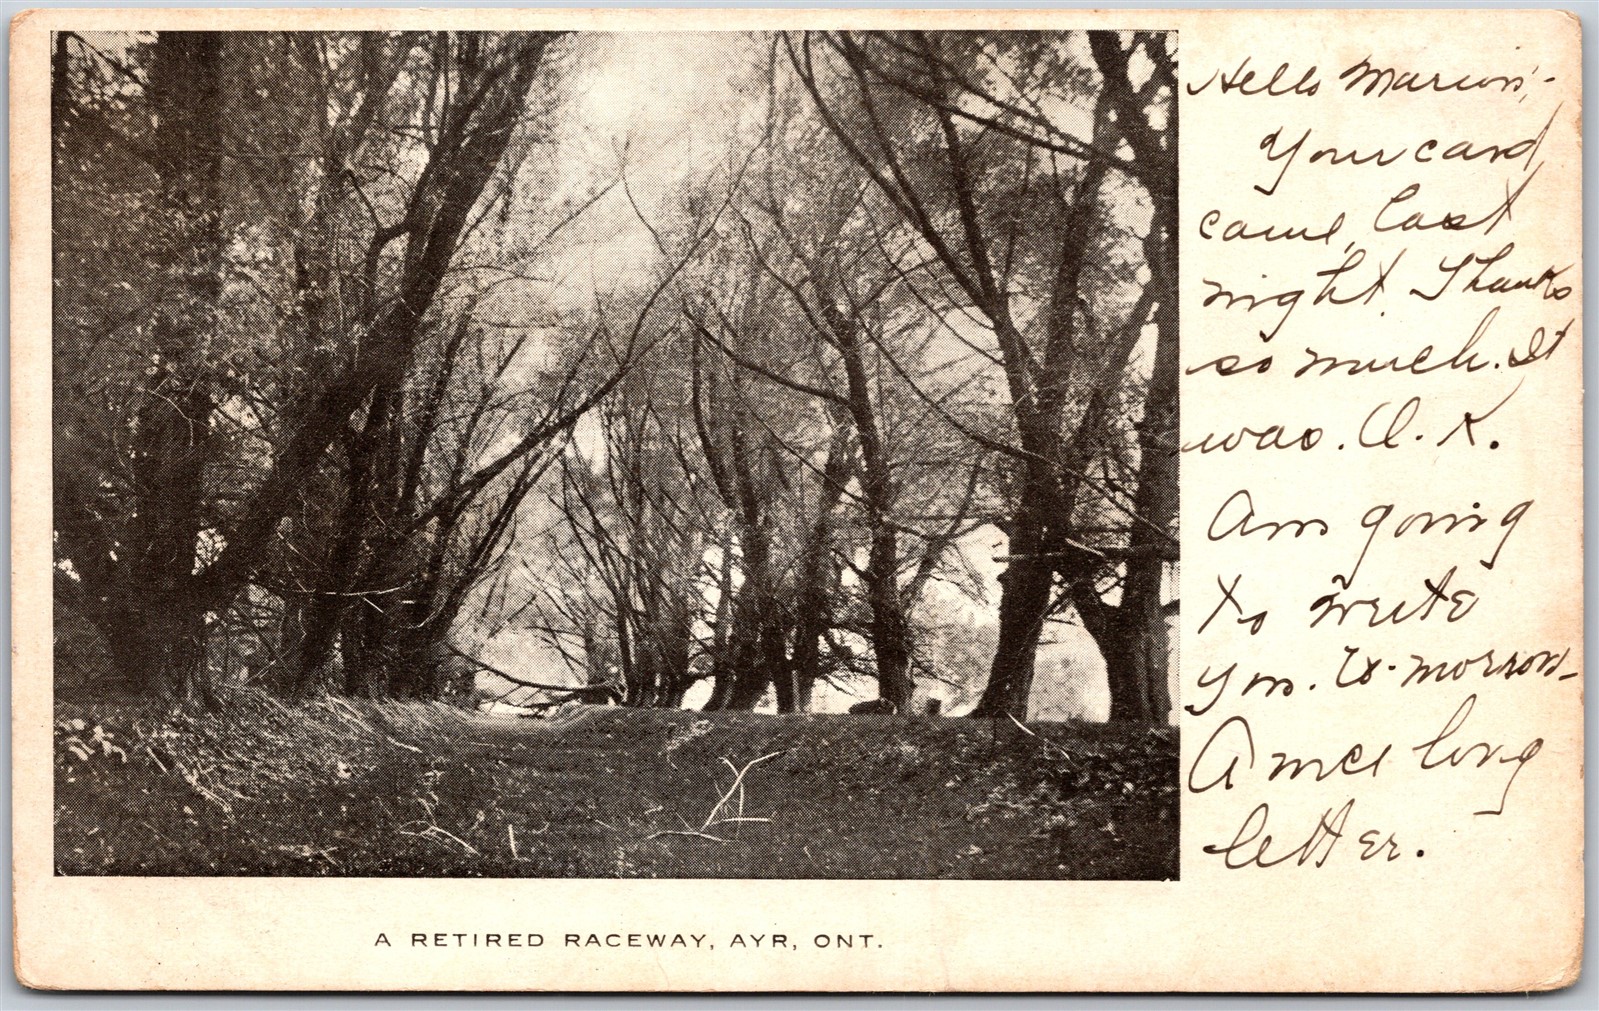 Hello Marion,-
Your card
came, last
night. Thanks
so much. It
was. O. K.
Am going
to write
you. to-morrow-
A nice long
letter.
A RETIRED RACEWAY, AYR, ONT.